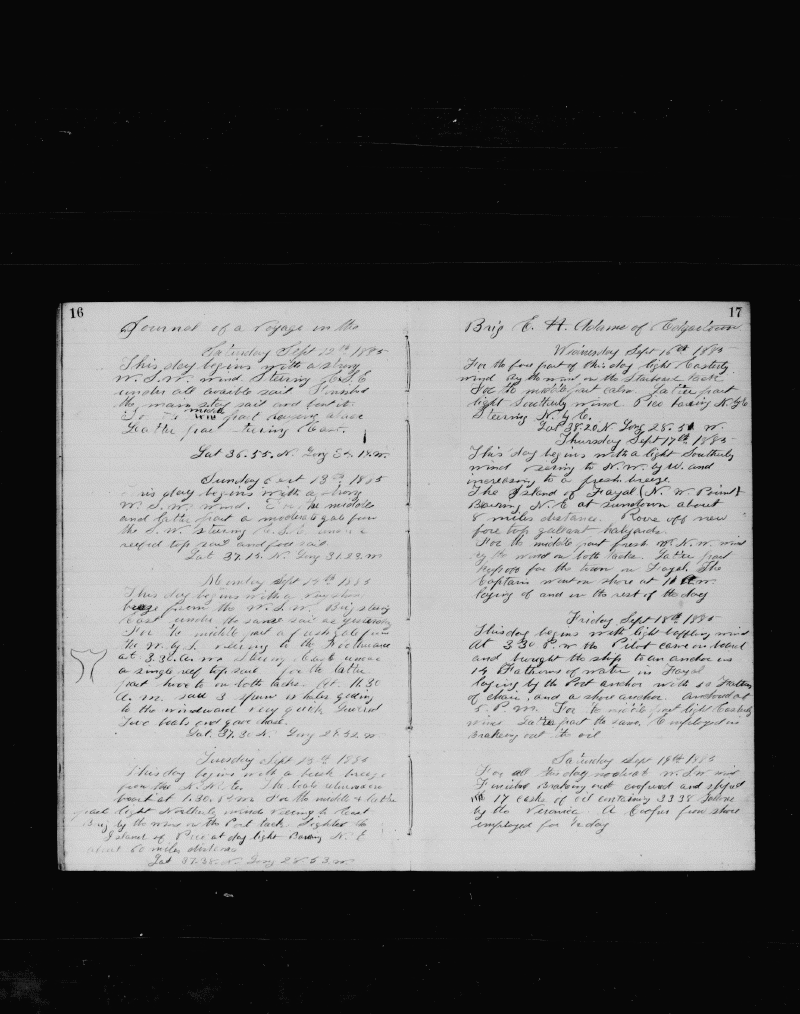 16
Journal of a Voyage in the
Saturday Sept 12th 1885
This day begins with a strong
W. S. W. wind Steering E.S.E
under all sail Finished
the main stay sail and
middle part
Latter part steering East.
Lat 36.55. N. Long 34.14 W.
Sunday Sept 13th 1885
This day begins with a strong
W. S. W. wind. the middle
and latter part a moderate gale from
the S. W. steering E.S.E. under
reefed top sail and fore sail
Lat 37.15. N. Long 31.23. W
Monday Sept 14th 1885
This day begins with a
breeze from the W. S. W. Brig steering
East under the same sail as yesterday
For the middle part a fresh gale from
the W. by S.
at 3.30. A. M. Steering East under
a single reef top sail for the latter
part on both tacks. At 11.30
A. M. saw Sperm Whales going
to the windward very quick Lowered
Two boats and gave chase.
Lat. 37.30 N. Long 29.52. W
Tuesday Sept 15th 1885
This day begins with a brisk breeze
from the N. The boats returned on
board at 1.30. P. M. For the middle & latter
part light Northerly winds veering to East
Brig by the wind on the Port tack. Sighted the
Island of Pico at day light Bearing N. E
about 60 miles distance
Lat 37.38. N. Long 28.53. W
17
Brig E. H. Adams of Edgartown
Wednesday Sept 16th 1885
For the fore part of this day light Easterly
wind by the wind on the Starboard tack
For the middle part calm. Latter part
light Southerly wind. Pico bearing N. by E
Steering N. by E.
Lat 38.20 N. Long 28.51 W.
Thursday Sept 17th 1885
This day begins with a light Southerly
wind veering to N. W. by W. and
increasing to a fresh breeze
The Island of Fayal (N. W. Point)
Bearing N. E at sundown about
8 miles distance. Rove off new
fore top gallant halyards.
For the middle part fresh W. N. W. wind
by the wind on both tacks. Latter part
kept off for the town in Fayal. The
Captain went on shore at 11 A. M.
laying off and on the rest of the day
Friday Sept 18th 1885
This day begins with light baffling wind
At 3.30 P. M the Pilot came on board
and brought the ship to an anchor in
14 Fathoms of water in Fayal
laying by the Port anchor with 40 Fathoms
of chain, and a shore anchor. anchored at
5. P. M. For the middle part light Easterly
wind Latter part the same. Employed in
Breaking out the oil
Saturday Sept 19th 1885
For all this day moderate W. S. W wind
Finished Breaking out coopered and shipped
17 casks of oil containing 3338 gallons
by the Veronica. A Cooper from shore
employed for the day